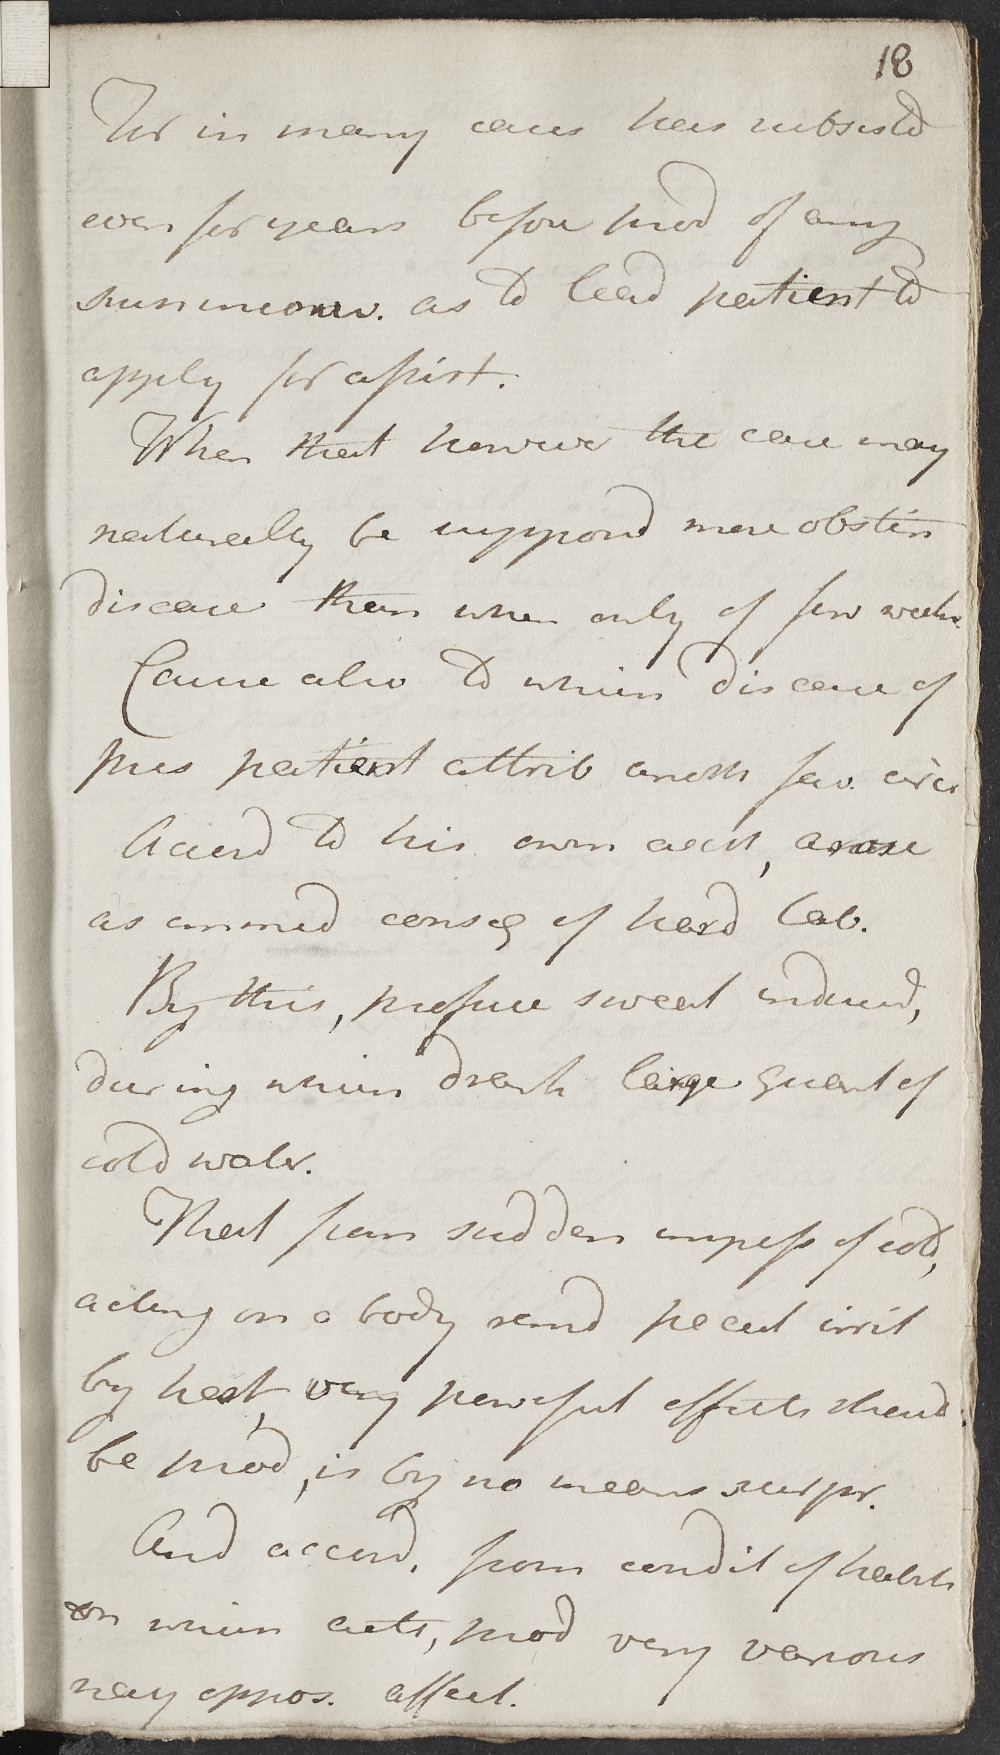 18
For in many cases has subsistd
even for years before prod of any
such inconv. as to lead patient to
apply for assist.
When that however the case may
naturally be supposd more obstin
disease than when only of few weeks.
Cause also to which disease of
pres patient attrib anoth fav. circ
Accord to his own acct, arose
as immed conseq of hard lab.
By this, profuse sweat induced,
during which drank large quant of
cold water.
That from sudden impress of cold,
acting on a body rend pecul irrit
by heat, very powerful effects should
be prod, is by no means surpr.
And accord. from condit of habit
on which acts, prod very various
nay oppos. affect.